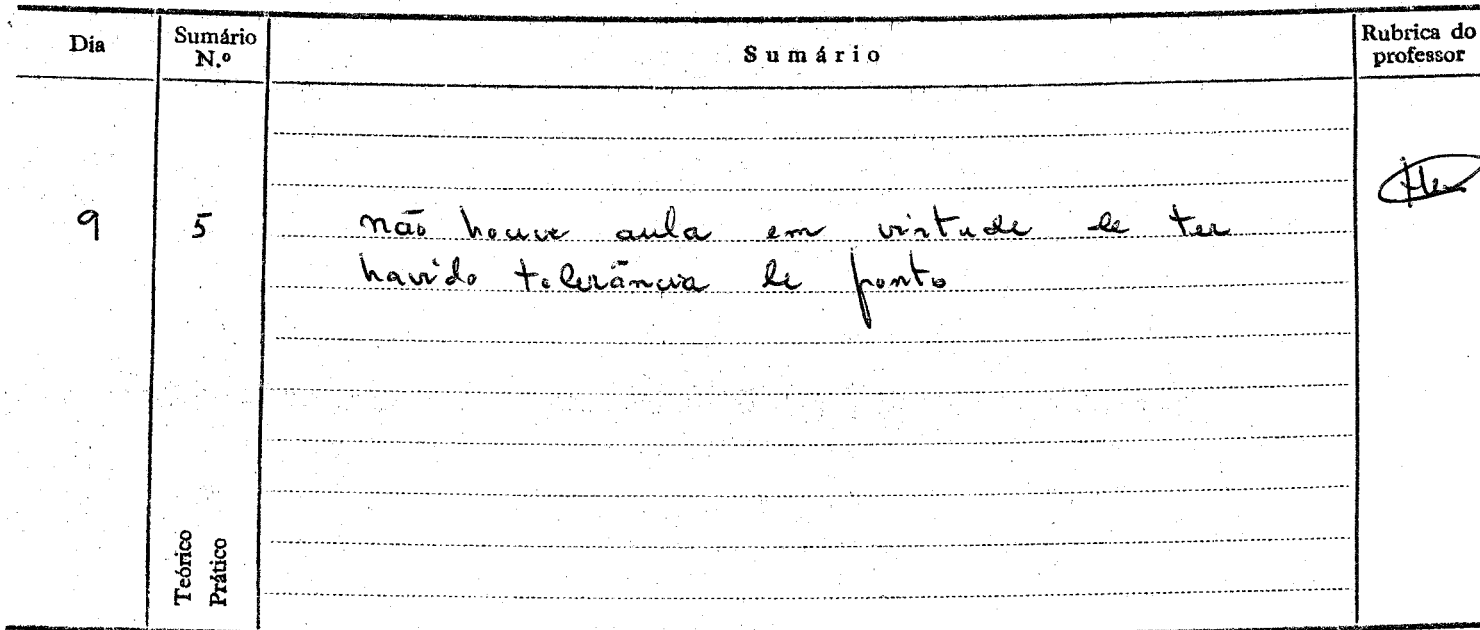 Dia
Sumário N.º
Sumário
Rubrica do professor
9
5
não houve aula em virtude de ter
havido tolerância de ponto
Teórico
Prático